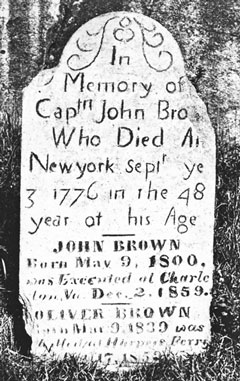 In
Memory of
Captn John Bro
Who Died At
Newyork Septr ye
3 1776 in the 48
year of his Age
JOHN BROWN
Born May 9, 1800,
was Executed at Charle
ton, Va. Dec. 2, 1859.
OLIVER BROWN
Born Mar 9, 1839 was
killed at Harpers Ferry
17, 1859